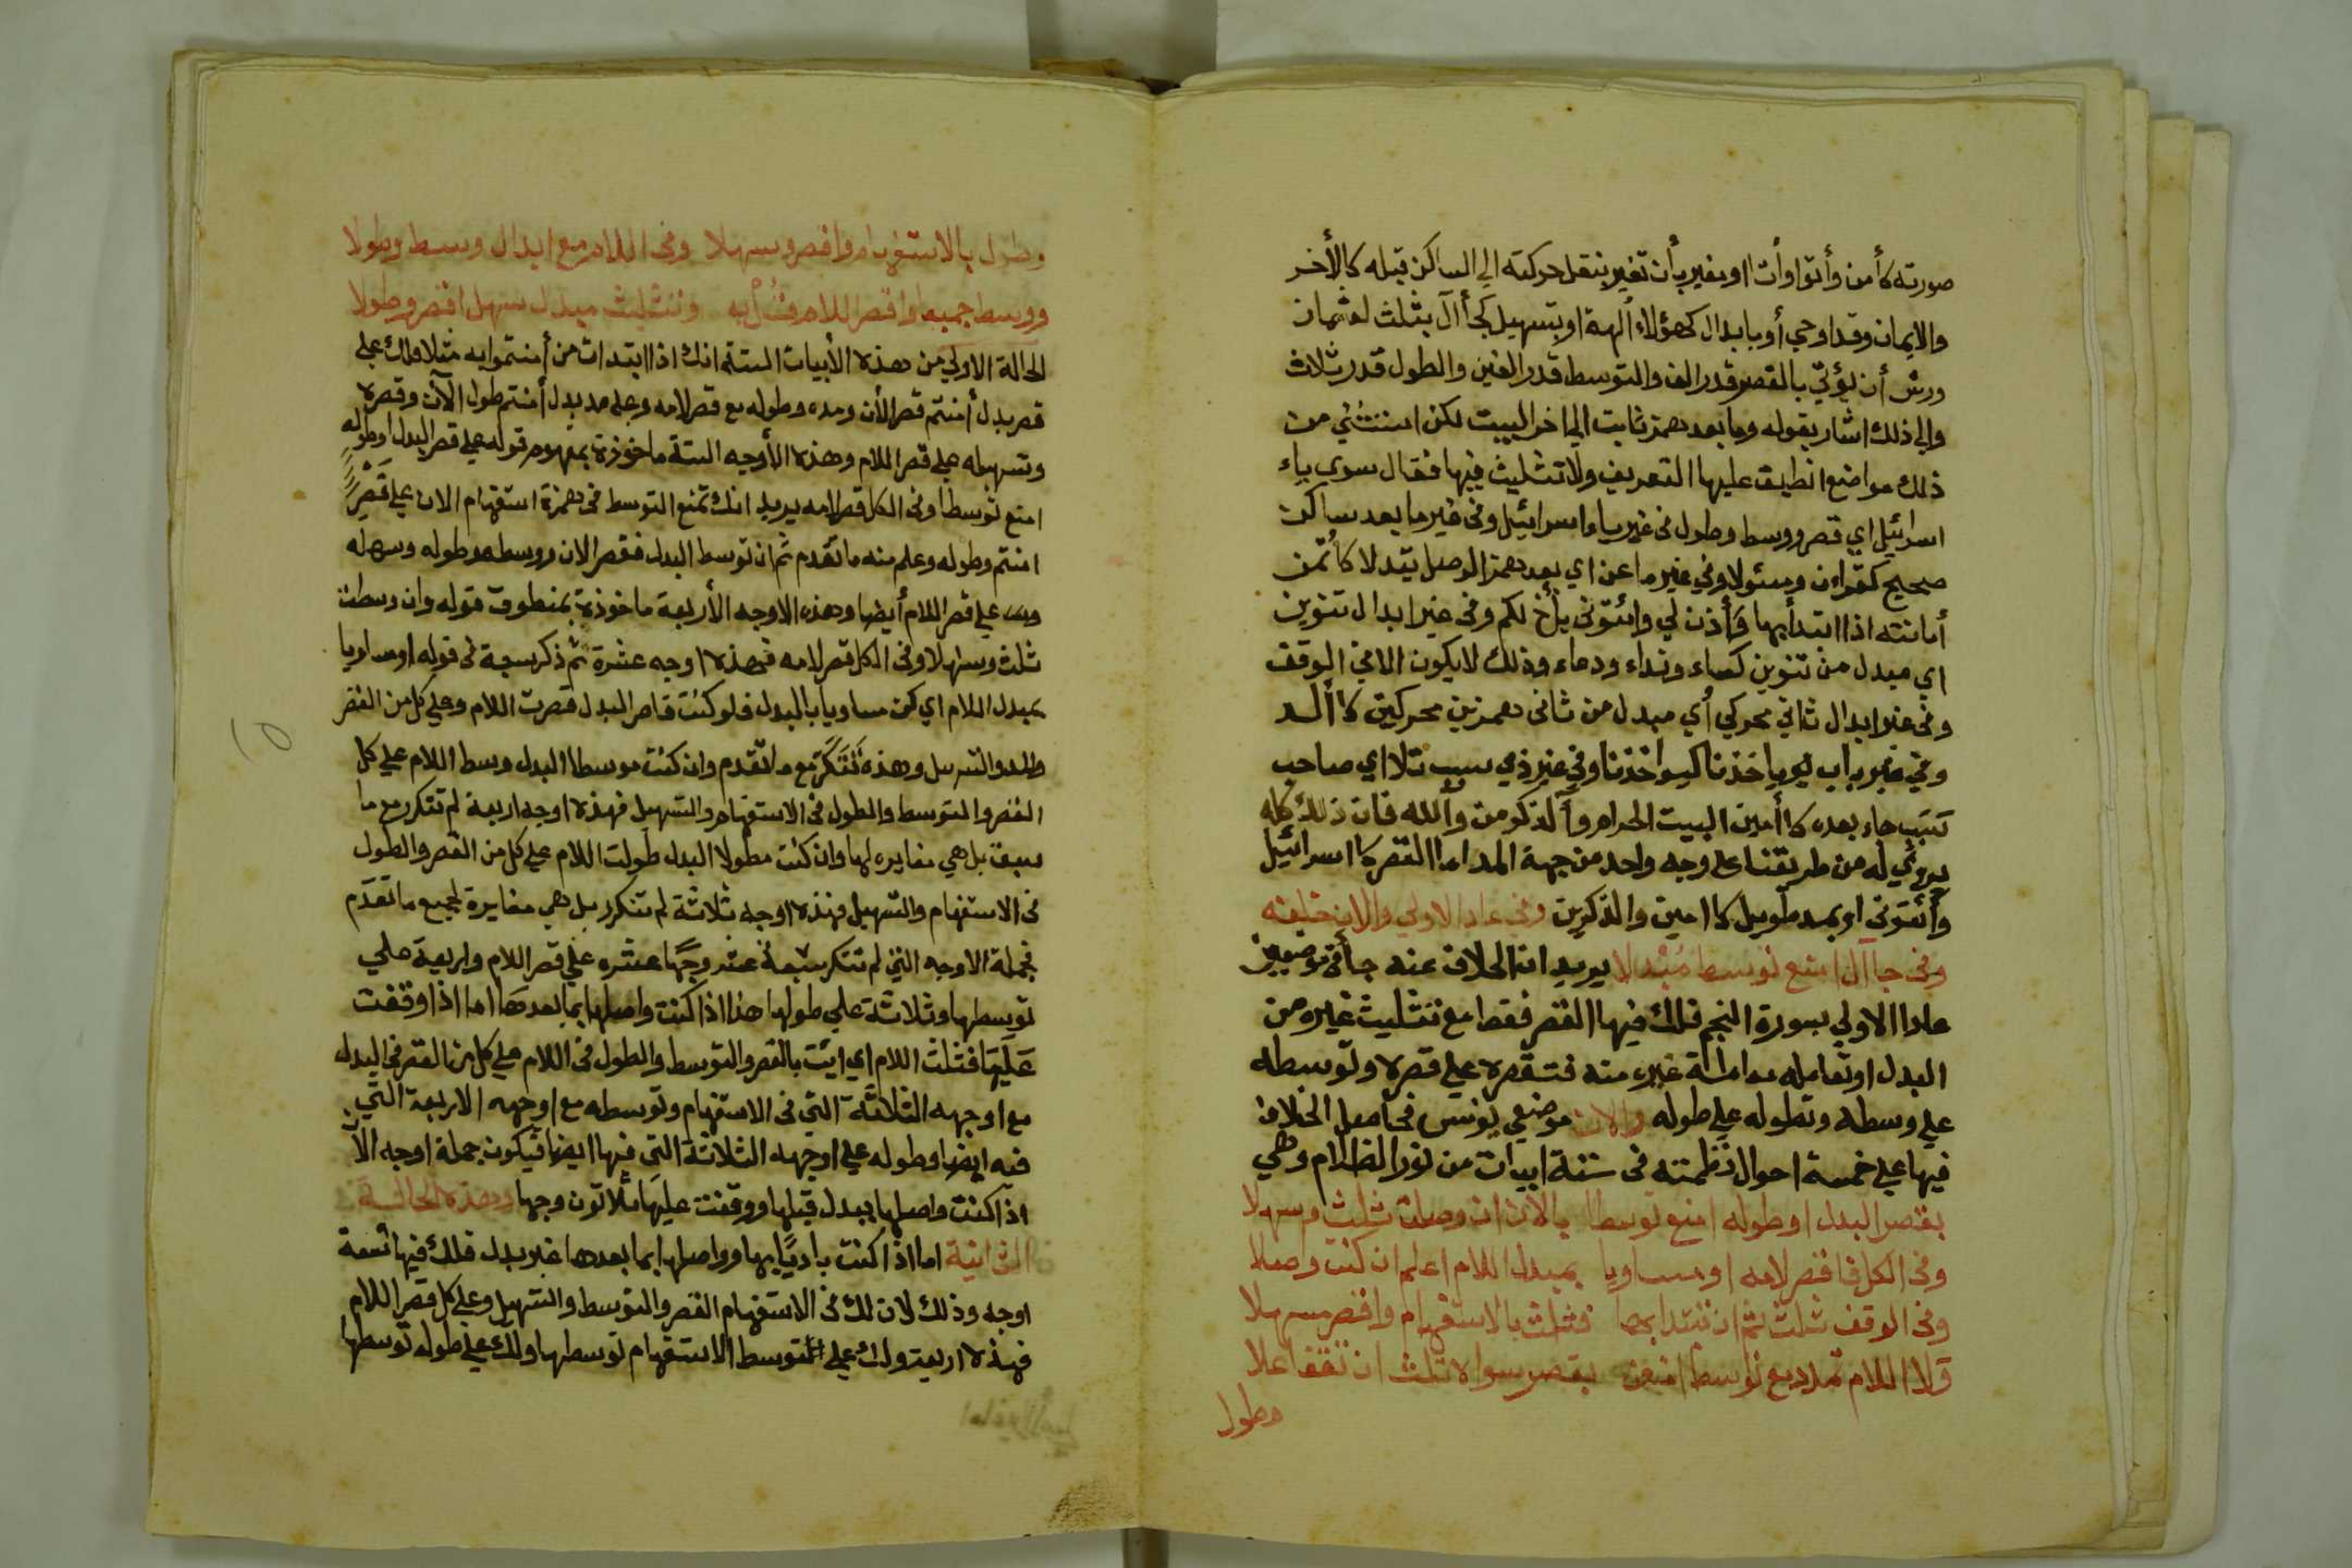 صورته كأمن وأتوا وأت او بغير بأن تغير بنقل حركته الي الساكن قبله كالأخر
والايمان وقد اوحي أو بابدال كهؤلاء ألهة او بتسهيل كجأ آل بثلث لعثمان
ورش أن يؤتي بالقصر قدر الف والتوسط قدر الفين والطول قدر ثلاث
والي ذلك اشار بقوله وما بعد همز ثابت الي اخر البيت لكن استثني من
ذلك مواضع انطبق عليها التعريف ولا تثليث فيها فقال سوي ياء
اسرائيل اي قصر ووسط وطول في غير ياء اسرائيل وفي غير ما بعد ساكن
صحيح كقرءان ومسئولا وفي غير ما عن اي بعد همز الوصل يتدلا كاؤتمن
أمانته اذا ابتدأ بها وأذن لي وائتوني بأخ لكم وفي غير ابدال تنوين
اي مبدل من تنوين كماء ونداء ودعاء وذلك لا يكون الا في الوقف
وفي غير ابدال ثاني محركي أي مبدل من ثاني همزين محركين كاألد
وفي غير باب يؤياخذنا كيواخذنا وفي غير ذي سبب تلا اي صاحب
سَبَب جاء بعده كاأمين البيت الحرام وآلذكرين وآلله فان ذلك كله
يروي له من طريقنا علي وجه واحد من جهة المد اما القصر كاسرائيل
وأئتوني او بمد طويل كاامين والذكرين وفي عادا الاولي والان خلفه
وفي جاآل امنع توسط مُبْدلا يريد ان الخلاف عنه جا في موضعين
عادا الاولي بسورة النجم فلك فيها القصر فقط مع تثليث غيره من
البدل او تعامله معاملة غيره منه فتقصره علي قصره وتوسطه
علي وسطه وتطوله علي طوله والان موضعي يونس في اصل الخلاف
فيها علي خمسة احوال نظمته في ستة ابيات من نور الظلام وهي
بقصر البدل او طوله امنع توسطا بالان ان وصلت ثلث وسهلا
وفي الكل فاقصر لامه او مساويا بمبدل اللام اعلم ان كنت وصلا
وفي الوقف ثلث ثم ان تبتدا بها فثلث بالاستفهام واقصر مسهلا
ولا اللام تمدد مع توسط امنعن بقصر سوا لا ثلث ان تقف اعلا
وطول
وطول بالاستفهام واقصر وسهلا وفي اللام مع ابدال وسط وطولا
ووسط جميعا واقصر اللام فتُل به وتثليث مبدل سهل اقصر وطولا
الحالة الاولي من هذه الأبيات الستة انك اذا ابتدات من أمنتموا به مثلا فلك علي
قصر بدل أمنتم قصر الأن ومده وطوله مع قصر لامه وعلي مد بدل أمنتم طول الآن وقصره
وتسهيله علي قصر اللام وهذه الأوجه الستة ماخوذة بمفهوم قوله علي قصر البدل او طوله
امنع توسطا وفي الكل قصر لامه يريد انك تمنع التوسط في همزة استفهام الان علي قَصْرِ
امنتم وطوله وعلم منه ما تقدم ثم ان توسط البدل فقصر الان ووسطه وطوله وسهله
علي قصر اللام أيضا وهذه الاوجه الأربعة ماخوذة بمنطوق قوله وان وسطت
ثلث وسهلا وفي الكل قصر لامه فهذه اوجه عشرة ثم ذكر سبعة في قوله او مساويا
بمبدل اللام اي كن مساويا بالبدل فلو كنت قاصر البدل قصرت اللام وعلي كل من القصر
والمد والتسهيل وهذه تَتَكَرَّر مع ما تقدم وان كنت موسطا البدل وسط اللام علي كل
القصر والتوسط والطول في الاستفهام والتسهيل فهذه اوجه اربعة لم تتكرر مع ما
سبق بل هي مغايرة لها وان كنت مطولا البدل طولت اللام علي كل من القصر والطول
في الاستفهام والتسهيل فهذه اوجه ثلاثة لم تتكرر بل هي مغايرة لجميع ما تقدم
فجملة الاوجه التي لم تتكرر سبعة عشر وجها عشره علي قصر اللام واربعة علي
توسطها وثلاثة علي طولها هذا اذا كنت واصلها بما بعدها اما اذا وقفت
عَلَيها فثلث اللام اي ايت بالقصر والتوسط والطول في اللام علي كل من القصر في البدل
مع اوجهه الثلاثة التي في الاستفهام وتوسطه مع اوجهه الاربعة التي
فيه ايضا وطوله علي اوجهه الثلاثة التي فيها ايضا فيكون جملة اوجه الآن
اذا كنت واصلها ببدل قبلها ووقفت عليها ثلاثون وجها وهذه الحالة
الثانية اما اذا كنت باديًا بها وواصلها بما بعدها غير بدل فلك فيها تسعة
اوجه وذلك لان لك في الاستفهام القصر والتوسط والتسهيل وعلي كل قصر اللام
فهذه اربعة ولك علي التوسط الاستفهام توسطها ولك علي طوله توسطها